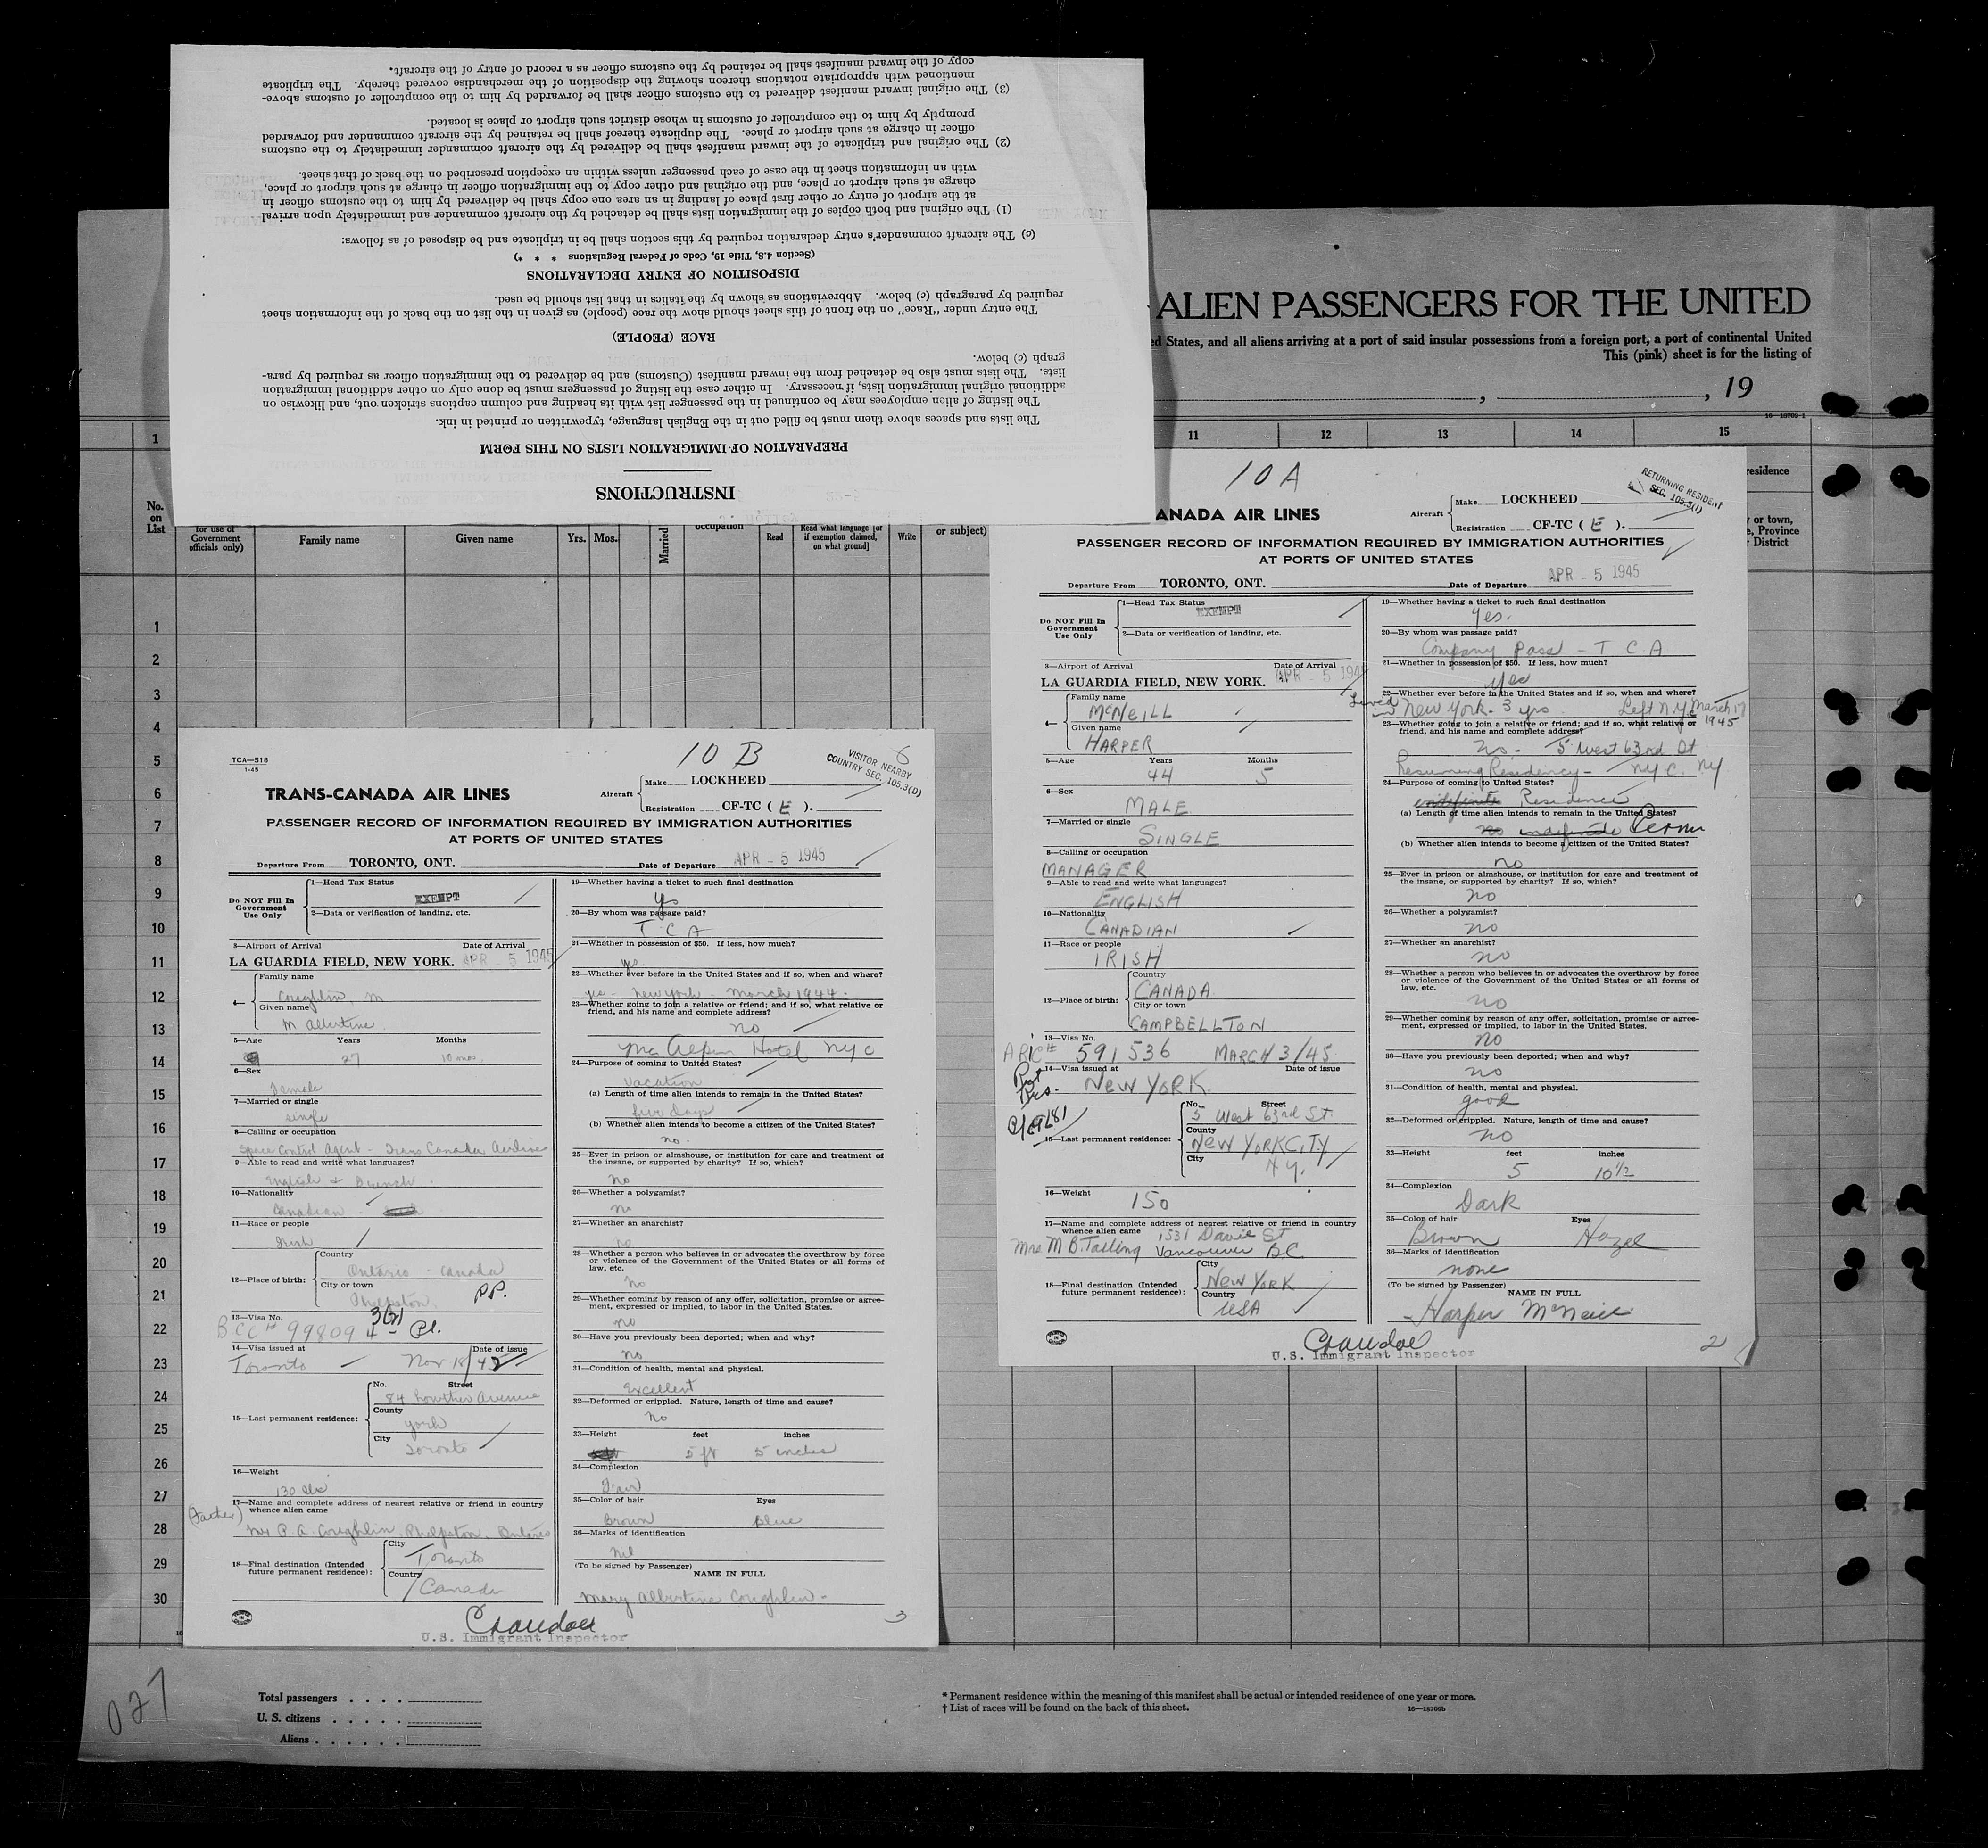 INSTRUCTIONS
PREPARATION OF IMMIGRATION LISTS ON THIS FORM
The lists and spaces above them must be filled out in the English language, typewritten or printed in ink.
The listing of alien employees may be continued in the passenger list with its heading and column captions stricken out, and likewise on
additional original immigration lists, if necessary. In either case the listing of passengers must be done only on other additional immigration
lists. The lists must also be detached from the inward manifest (Customs) and be delivered to the immigration officer as required by para-
graph (c) below.
RACE (PEOPLE)
The entry under "Race" on the front of this sheet should show the race (people) as given in the list on the back of the information sheet
required by paragraph (c) below. Abbreviations as shown by the italics in that list should be used.
DISPOSITION OF ENTRY DECLARATIONS
(Section 4.8, Title 19, Code of Federal Regulations * * *)
(c) The aircraft commander's entry declaration required by this section shall be in triplicate and be disposed of as follows:
(1) The original and both copies of the immigration lists shall be detached by the aircraft commander and immediately upon arrival
at the airport of entry or other first place of landing in an area one copy shall be delivered by him to the customs officer in
charge at such airport or place, and the original and other copy to the immigration officer in charge at such airport or place,
with an information sheet in the case of each passenger unless within an exception prescribed on the back of that sheet.
(2) The original and triplicate of the inward manifest shall be delivered by the aircraft commander immediately to the customs
officer in charge at such airport or place. The duplicate thereof shall be retained by the aircraft commander and forwarded
promptly by him to the comptroller of customs in whose district such airport or place is located.
(3) The original inward manifest delivered to the customs officer shall be forwarded by him to the comptroller of customs above-
mentioned with appropriate notations thereon showing the disposition of the merchandise covered thereby. The triplicate
copy of the inward manifest shall be retained by the customs officer as a record of entry of the aircraft.
ALIEN PASSENGERS FOR THE UNITED
ed States, and all aliens arriving at a port of said insular possessions from a foreign port, a port of continental United
This (pink) sheet is for the listing of
, , 19
16—18709-1
1 11 12 13 14 15
No. on List
for use of Government officials only)
Family name
Given name
Yrs. Mos.
Married
occupation
Read
Read what language [or if exemption claimed, on what ground]
Write
or subject)
residence
or town,
e, Province
District
1
2
3
4
5
6
7
8
9
10
11
12
13
14
15
16
17
18
19
20
21
22
23
24
25
26
27
28
29
30
10 A
RETURNING RESIDENT
SEC. 105.3(1)
ANADA AIR LINES
Aircraft Make LOCKHEED
Registration CF-TC ( E ).
PASSENGER RECORD OF INFORMATION REQUIRED BY IMMIGRATION AUTHORITIES
AT PORTS OF UNITED STATES
Departure From TORONTO, ONT. Date of Departure APR - 5 1945
Do NOT Fill In Government Use Only
1—Head Tax Status EXEMPT
2—Data or verification of landing, etc.
3—Airport of Arrival Date of Arrival
LA GUARDIA FIELD, NEW YORK. APR 5 194
4— Family name
McNEILL
Given name
HARPER
5—Age Years Months
44 5
6—Sex
MALE
7—Married or single
SINGLE
8—Calling or occupation
MANAGER
9—Able to read and write what languages?
ENGLISH
10—Nationality
CANADIAN
11—Race or people
IRISH
12—Place of birth: Country
CANADA
City or town
CAMPBELLTON
13—Visa No.
ARC# 591536 MARCH 3/45
14—Visa issued at Date of issue
NEW YORK
15—Last permanent residence: No. Street
5 West 63rd St.
County
NEW YORK CITY
City
N.Y.
16—Weight
150
17—Name and complete address of nearest relative or friend in country
whence alien came 1531 Davie St
Mrs M B. Tatling Vancouver BC
18—Final destination (Intended future permanent residence): City
NEW YORK
Country
USA
19—Whether having a ticket to such final destination
Yes.
20—By whom was passage paid?
Company Pass - T C A
21—Whether in possession of $50. If less, how much?
yes
22—Whether ever before in the United States and if so, when and where?
Lived New York - 3 yrs Left N.Y.C March 17 1945
23—Whether going to join a relative or friend; and if so, what relative or
friend, and his name and complete address?
no - 5 West 63rd St
Resuming Residency - NYC. NY
24—Purpose of coming to United States?
indefinite Residence
(a) Length of time alien intends to remain in the United States?
no indefinite Perm
(b) Whether alien intends to become a citizen of the United States?
no
25—Ever in prison or almshouse, or institution for care and treatment of
the insane, or supported by charity? If so, which?
no
26—Whether a polygamist?
no
27—Whether an anarchist?
no
28—Whether a person who believes in or advocates the overthrow by force
or violence of the Government of the United States or all forms of
law, etc.
no
29—Whether coming by reason of any offer, solicitation, promise or agree-
ment, expressed or implied, to labor in the United States.
no
30—Have you previously been deported; when and why?
no
31—Condition of health, mental and physical.
good
32—Deformed or crippled. Nature, length of time and cause?
no
33—Height feet inches
5 10½
34—Complexion
Dark
35—Color of hair Eyes
Brown Hazel
36—Marks of identification
none
(To be signed by Passenger) NAME IN FULL
Harper McNeill
U.S. Immigrant Inspector
2
TCA—518
1-45
10 B
6
VISITOR NEARBY
COUNTRY SEC. 105.3(D)
TRANS-CANADA AIR LINES
Aircraft Make LOCKHEED
Registration CF-TC ( E ).
PASSENGER RECORD OF INFORMATION REQUIRED BY IMMIGRATION AUTHORITIES
AT PORTS OF UNITED STATES
Departure From TORONTO, ONT. Date of Departure APR - 5 1945
Do NOT Fill In Government Use Only
1—Head Tax Status EXEMPT
2—Data or verification of landing, etc.
3—Airport of Arrival Date of Arrival
LA GUARDIA FIELD, NEW YORK. APR 5 1945
4— Family name
Coughlin, M
Given name
M Albertine
5—Age Years Months
27 10 mos.
6—Sex
Female
7—Married or single
single
8—Calling or occupation
Space Control Agent - Trans Canada Airlines
9—Able to read and write what languages?
English & French.
10—Nationality
Canadian
11—Race or people
Irish
12—Place of birth: Country
Ontario - Canada
City or town
Phelpston. PP.
13—Visa No.
BCC# 998094
14—Visa issued at Date of issue
Toronto Nov 18/42
15—Last permanent residence: No. Street
84 Lowther Avenue
County
York
City
Toronto
16—Weight
130 lbs
17—Name and complete address of nearest relative or friend in country
whence alien came
(Father) Mr P. A. Coughlin, Phelpston, Ontario
18—Final destination (Intended future permanent residence): City
Toronto
Country
Canada
19—Whether having a ticket to such final destination
Yes
20—By whom was passage paid?
T C A
21—Whether in possession of $50. If less, how much?
yes.
22—Whether ever before in the United States and if so, when and where?
yes - New York - March 1944.
23—Whether going to join a relative or friend; and if so, what relative or
friend, and his name and complete address?
no
Mc Alpin Hotel NYC
24—Purpose of coming to United States?
vacation
(a) Length of time alien intends to remain in the United States?
five days
(b) Whether alien intends to become a citizen of the United States?
no.
25—Ever in prison or almshouse, or institution for care and treatment of
the insane, or supported by charity? If so, which?
no
26—Whether a polygamist?
no
27—Whether an anarchist?
no
28—Whether a person who believes in or advocates the overthrow by force
or violence of the Government of the United States or all forms of
law, etc.
no
29—Whether coming by reason of any offer, solicitation, promise or agree-
ment, expressed or implied, to labor in the United States.
no
30—Have you previously been deported; when and why?
no
31—Condition of health, mental and physical.
Excellent
32—Deformed or crippled. Nature, length of time and cause?
no
33—Height feet inches
5 ft 5 inches
34—Complexion
Fair
35—Color of hair Eyes
Brown Blue
36—Marks of identification
nil
(To be signed by Passenger) NAME IN FULL
Mary Albertine Coughlin
U.S. Immigrant Inspector
3
027
Total passengers . . . .
U. S. citizens . . . . .
Aliens . . . . . .
* Permanent residence within the meaning of this manifest shall be actual or intended residence of one year or more.
† List of races will be found on the back of this sheet.
16—18709b